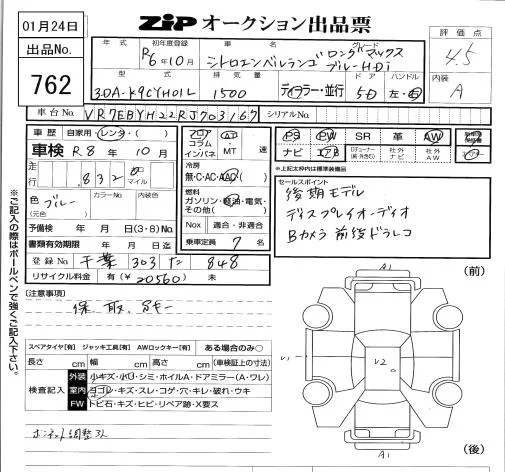 01月24日
出品No.
762
ZIP オークション出品票
評価点
4.5
内装
A
年式 初年度登録 車名 グレード
R6年10月 シトロエンベルランゴ ロングマックス ブルーHDi
型式 排気量 ドア ハンドル
3DA-K9CYH01L 1500 ディーラー・並行 5D 左・右
車台No. VR7EBYH22RJ703167 シリアルNo.
車歴 自家用・レンタ・( )
車検 R8年10月
走行 .832 マイル
色 ブルー (元色) カラーNo. 内装色
予備検 年 月 日(3・8)No.
書類有効期限 年 月 日迄
登録No 千葉 303 た 848
リサイクル料金 有(¥20560) 未
フロア コラム インパネ AT・MT 速
冷房 無・C・AC・AAC
燃料 ガソリン・軽油・電気・その他( )
Nox 適合・非適合
乗車定員 7名
PS PW SR 革 AW
ナビ エアB Dチューナー 社外ナビ 社外AW
*上記太枠内は標準装備品
セールスポイント
後期モデル
ディスプレイオーディオ
Bカメラ 前後ドラレコ
[注意事項]
保 取
スペアタイヤ[有] ジャッキ工具[有] AWロックキー[有] ある場合のみ○
長さ cm 幅 cm 高さ cm (車検証上の寸法)
検査記入
外装 小キズ・小凹・シミ・ホイルA・ドアミラー(A・ワレ)
室内 ヨゴレ・キズ・スレ・コゲ・穴・キレ・破れ・ウキ
FW トビ石・キズ・ヒビ・リペア跡・X要ス
ボンネット調整ズレ
※ご記入の際はボールペンで強くご記入下さい。
(前)
A1
V1
V2
A1
(後)